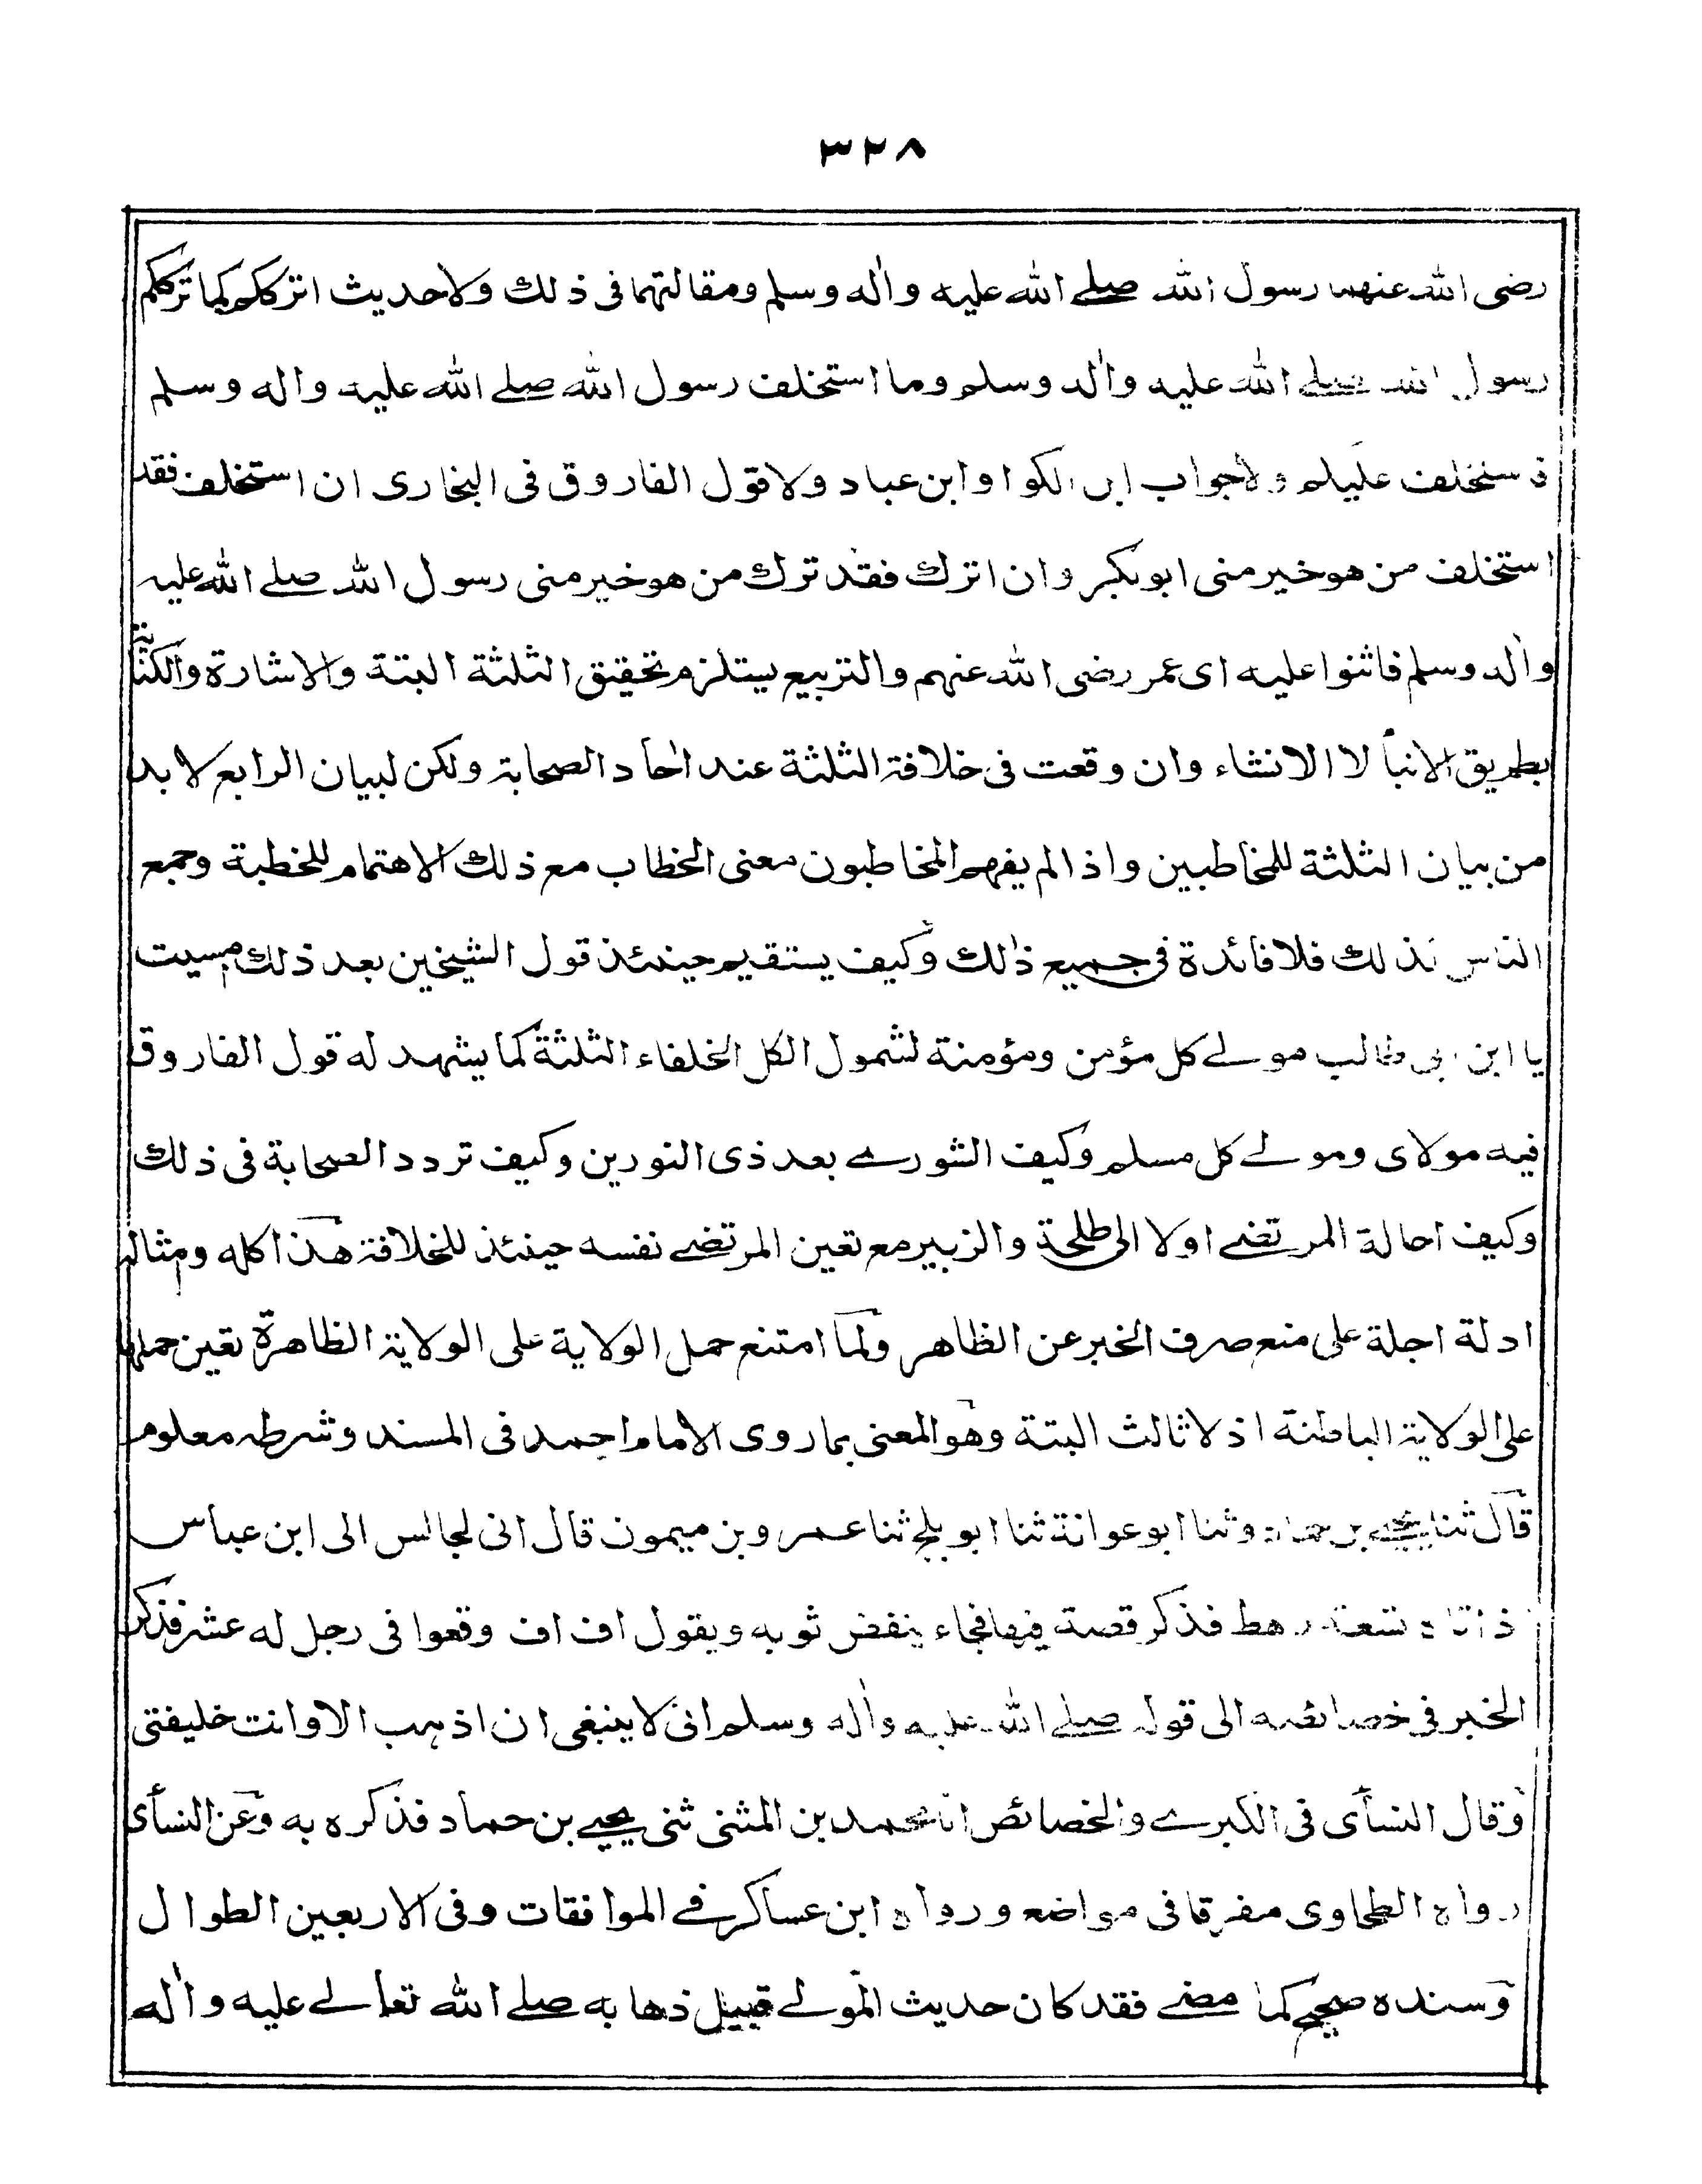 ٣٢٨
رضى الله عنهما رسول الله صلے الله عليه واٰله وسلم ومقالتهما فى ذلك ولاحديث اترككم كما ترككم
رسول الله صلے الله عليه واٰله وسلم وما استخلف رسول الله صلے الله عليه واله وسلم
فاستخلف عليكم ولاجواب ابن الكوا وابن عباد ولاقول الفاروق فى البخارى ان استخلف فقد
استخلف من هو خير منى ابوبكر وان اترك فقد ترك من هو خير منى رسول الله صلے الله عليه
واٰله وسلم فاثنوا عليه اى عمر رضى الله عنهم والتربيع يستلزم تحقيق الثلثة البتة والاشارة والكناية
بطريق الانبأ لا الانشاء وان وقعت فى خلافة الثلثة عند اٰحاد الصحابة ولكن لبيان الرابع لا بد
من بيان الثلثة للمخاطبين واذا لم يفهم المخاطبون معنى الخطاب مع ذلك الاهتمام للخطبة وجمع
الناس لذلك فلا فائدة فى جميع ذٰلك وكيف يستقيم حينئذ قول الشيخين بعد ذلك امسيت
يا ابن ابى طالب مولے كل مؤمن ومؤمنة لشمول الكل الخلفاء الثلثة كما يشهد له قول الفاروق
فيه مولاى ومولے كل مسلم وكيف الشورے بعد ذى النورين وكيف تردد الصحابة فى ذلك
وكيف احالة المرتضے اولا الى طلحة والزبير مع تعين المرتضے نفسه حينئذ للخلافة هذا كله وامثاله
ادلة اجلة على منع صرف الخبر عن الظاهر ولما امتنع حمل الولاية على الولاية الظاهرة تعين حملها
على الولاية الباطنة اذ لا ثالث البتة وهو المعنى بما روى الامام احمد فى المسند وشرطه معلوم
قال ثنا يحيے بن حماد وثنا ابو عوانة ثنا ابو بلج ثنا عمرو بن ميمون قال انى لجالس الى ابن عباس
اذ اتاه تسعة رهط فذكر قصة فيها فجاء ينفض ثوبه ويقول اف اف وقعوا فى رجل له عشر فذكر
الخبر فى خصائصه الى قوله صلے الله عليه واٰله وسلم انى لا ينبغى ان اذهب الا وانت خليفتى
وقال النسأى فى الكبرے والخصائص انا محمد بن المثنى ثنى يحيے بن حماد فذكره به وعن النسأى
رواه الطحاوى مفرقا فى مواضعه ورواه ابن عساكر فے الموافقات وفى الاربعين الطوال
وسنده صحيح كما مضے فقد كان حديث المولے قبيل ذهابه صلے الله تعالے عليه واٰله